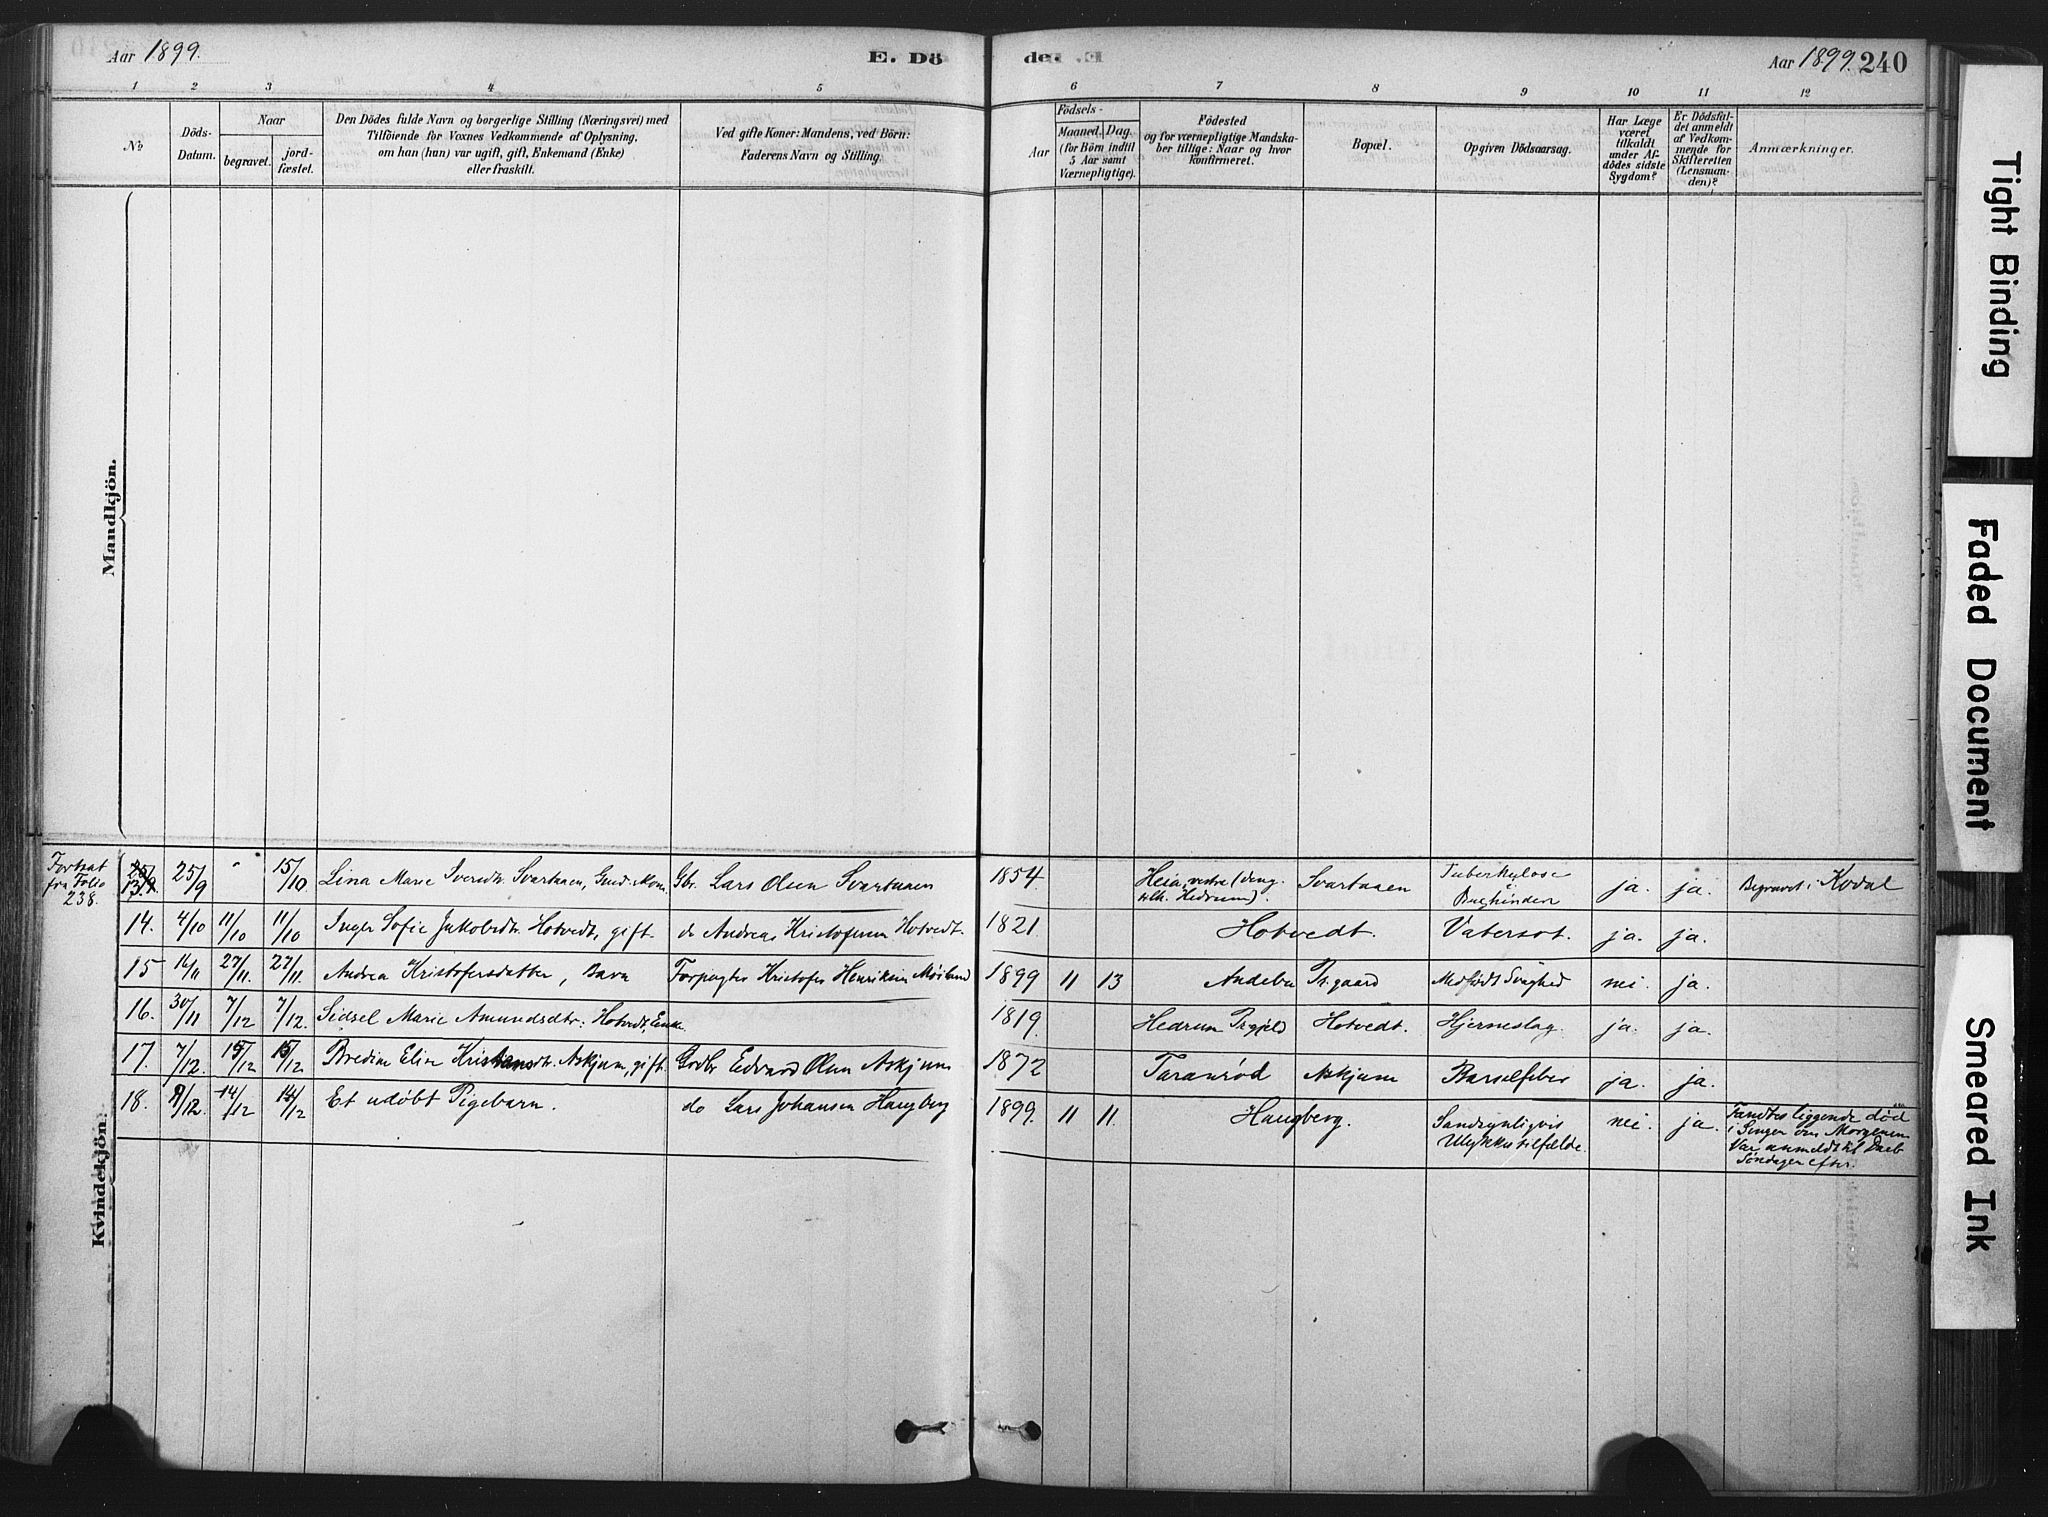 Aar 1899.
E. Dö
den E.
Aar 1899. 240
1 2 3 4 5
6 7 8 9 10 11 12
No
Döds-
Datum.
Naar
begravet.
jord-
fæstet.
Den Dödes fulde Navn og borgerlige Stilling (Næringsvei) med
Tilföiende for Voxnes Vedkommende af Oplysning,
om han (hun) var ugift, gift, Enkemand (Enke)
eller fraskilt.
Ved gifte Koner: Mandens, ved Börn:
Faderens Navn og Stilling.
Födsels-
Aar
Maaned. Dag.
(for Börn indtil
5 Aar samt
Værnepligtige).
Födested
og for værnepligtige Mandska-
ber tillige: Naar og hvor
konfirmeret.
Bopæl.
Opgiven Dödsaarsag.
Har Læge
været
tilkaldt
under Af-
dödes sidste
Sygdom?
Er Dödsfal-
det anmeldt
af Vedkom-
mende for
Skifteretten
(Lensman-
den)?
Anmærkninger.
Mandkjön.
Kvindekjön.
Fortsat
fra Folio
238.
13. 25/9 " 15/10 Lina Marie Iversdtr. Svartaaen, Gaardm.kone Gbr. Lars Olsen Svartaaen 1854. Heia, vestre ( Hedrum). Svartaaen Tuberkuløse Bughinden ja. ja. Begravet i Kodal
14. 4/10 11/10 11/10 Inger Sofie Jakobsdtr. Hotvedt, gift. do Andreas Kristofersen Hotvedt. 1821. Hotvedt. Vatersot. ja. ja.
15 16/11 27/11. 27/11. Andrea Kristofersdatter, Barn Forpagter Kristofer Henriksen Møiland 1899 11 13 Andebu Pr.gaard Medfødt Svaghed nei. ja.
16. 30/11 7/12 7/12. Sidsel Marie Amundsdtr: Hotvedt, Enke. 1819. Hedrum Prgjeld Hotvedt. Hjerneslag. ja. ja.
17. 7/12. 15/12 15/12 Bredine Elise Kristensdtr. Askjum, gift. Grdbr. Edvard Olsen Askjum 1872 Taranrød Askjum Barselfeber ja. ja.
18. 9/12. 14/12 14/12 Et udøbt Pigebarn. do Lars Johansen Haugberg 1899. 11 11. Haugberg. Sandsynligvis Ulykkestilfælde. nei. ja. Fandtes liggende død
i Sengen om Morgenen.
Var anmeldt til Daab
Søndagen efter.
Tight Binding
Faded Document
Smeared Ink